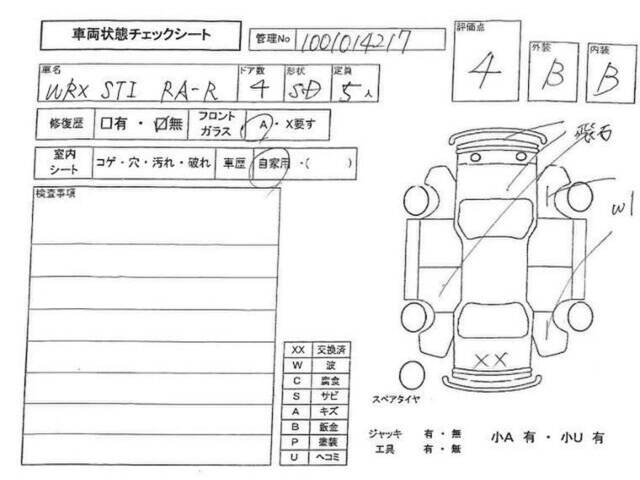 車両状態チェックシート
管理No 1001014217
評価点 4
外装 B
内装 B
車名 WRX STI RA-R
ドア数 4
形状 SD
定員 5人
修復歴 □有・☑無
フロントガラス A・X要す
室内シート コゲ・穴・汚れ・破れ
車歴 自家用・( )
検査事項
飛石
W1
XX
XX 交換済
W 波
C 腐食
S サビ
A キズ
B 鈑金
P 塗装
U ヘコミ
スペアタイヤ
ジャッキ 有・無
工具 有・無
小A 有・小U 有